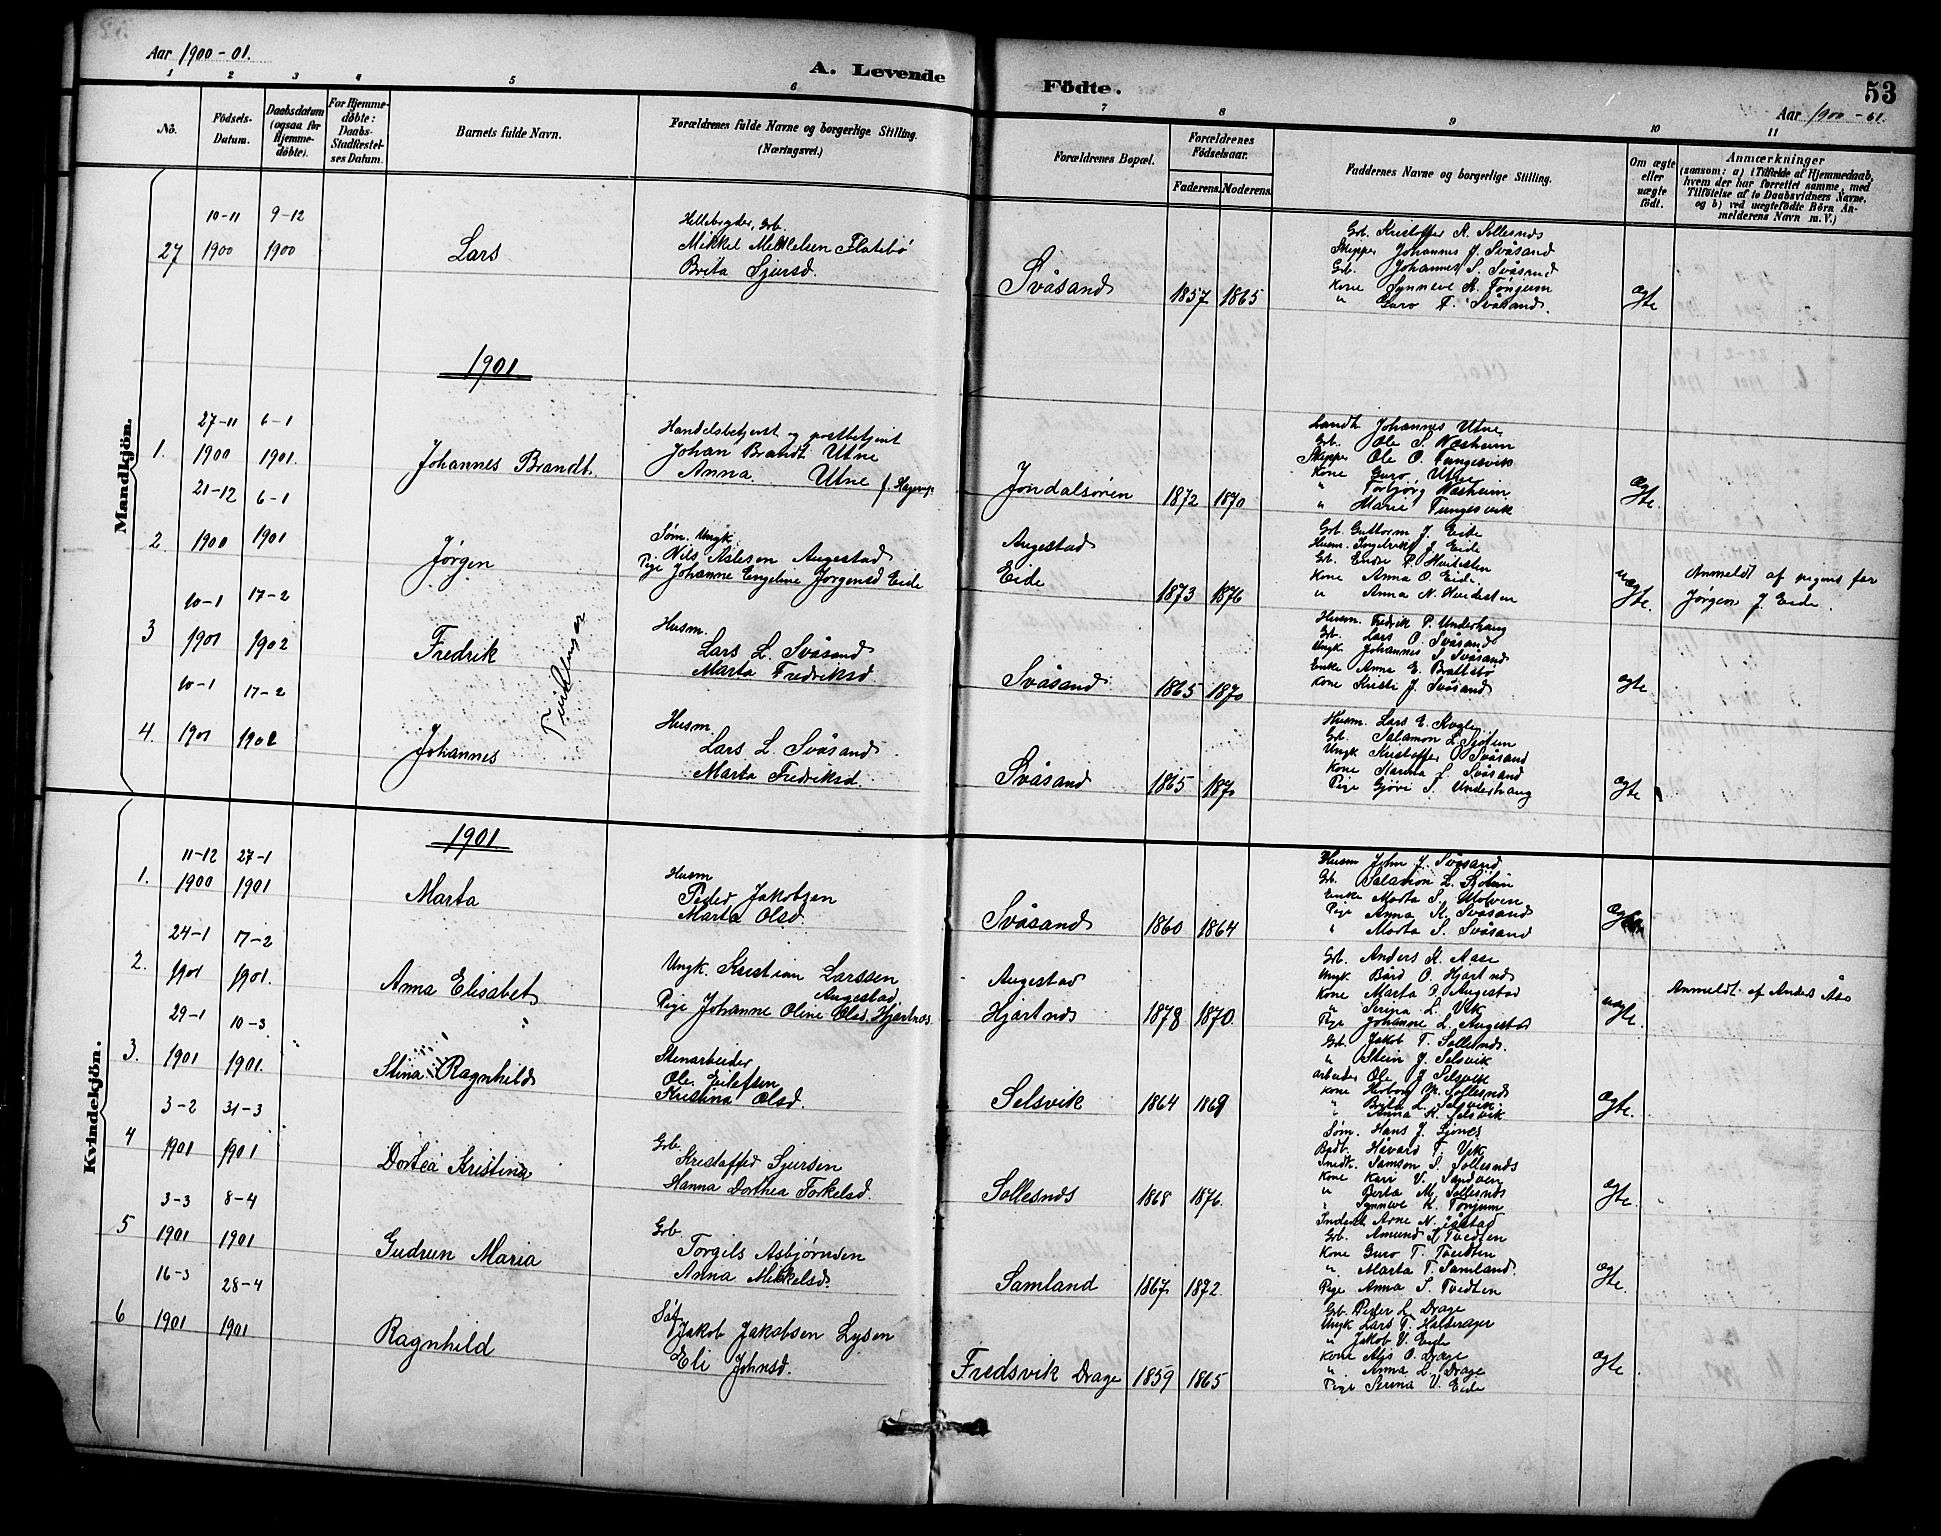 Aar 1900-01.
A. Levende
Fødte.
53
Aar 1900-01.
1 2 3 4 5 6 7 8 9 10 11
No.
Fødsels-
Datum.
Daabsdatum
(ogsaa for
Hjemme-
døbte).
For Hjemme-
døbte:
Daabs-
Stadfestel-
ses Datum.
Barnets fulde Navn.
Forældrenes fulde Navne og borgerlige Stilling.
(Næringsvei.)
Forældrenes Bopæl.
Forældrenes
Fødselsaar.
Faderens. Moderens.
Faddernes Navne og borgerlige Stilling.
Om ægte
eller
uægte
født.
Anmærkninger
(saasom: a) i Tilfælde af Hjemmedaab,
hvem der har forrettet samme, med
Tilføielse af to Daabsvidners Navne,
og b) ved uægtefødte Børn An-
melderens Navn m. V.)
Mandkjön.
27
10-11
1900
9-12
1900
Lars
Mikkel Mikkelsen Flatebö
Brita Sjursd.
Svåsand
1857 1865
Gb. Kristoffer A. Sollesnds
Skipper Johannes J. Svåsand
Gb. Johannes S. Svåsand
Kone Synneve K. Tonjum
" Guro T. Svåsand.
Ægte
1901
1.
27-11
1900
6-1
1901.
Johannes Brandt.
Handelsbetjent og postbetjent
Johan Brandt Utne
Anna Utne
Jondalsören
1872 1870
Landh. Johannes Utne
Gb. Ole S. Næsheim
Skipper Ole O. Tungesvik
Kone Guro Utne
" Torbjørg Næsheim
" Marie Tungesvik
Ægte
2
21-12
1900
6-1
1901
Jørgen
Søm. Ungk.
Nils Aslesen Augestad
Pige Johanne Engeline Jørgensd Eide
Augestad
Eide
1873 1876
Gb. Guttorm J. Eide
Husm. Ingebrikt J. Eide
Gb. Endre P. Hvidesten
Kone Anna O. Eide.
" Anna N. Hvidesten
uægte
Anmeldt af pigens far
Jørgen J. Eide.
3
10-1
1901
17-2
1902
Fredrik
Tvillinger
Husm.
Lars L. Svåsand
Marta Fredriksd
Svåsand
1865 1870
Husm. Fredrik P. Underhaug
Gb. Lars O. Svåsand
Ungk Johannes S Svåsand
Enke Anna E. Brattebö
Kone Kristi J. Svåsand
ægte
4.
10-1
1901
17-2
1902
Johannes
Husm
Lars L. Svåsand
Marta Fredriksd.
Svåsand
1865 1870
Husm. Lars E. Kogle
Gb. Salamon L. Sjötun
Ungk Kristoffer O. Svåsand
Kone Marina L. Svåsand
Pige Gjöri S. Underhaug
ægte
Kvindekjön.
1901
1.
11-12
1900
27-1
1901
Marta
Husm
Peder Jakobsen
Marta Olsd.
Svåsand
1860 1864
Husm John J. Svåsand
Gb. Salamon L. Sjötun
Enke Marta S. Utolven
Pige Anna K. Svåsand
" Marta S. Svåsand
Ægte
2.
24-1
1901
17-2
1901.
Anna Elisabet
Ungk. Kristian Larssen
Augestad
Pige Johanne Oline Olsd. Hjartnes
Augestad
Hjartnds
1878 1870.
Gb. Anders K. Aase
Ungk Bård O. Hjartnds
Kone Marta P. Augestad
" Serina L. Vik
Pige Johanne L. Augestad
uægte.
Anmeldt af Anders Åse
3.
29-1
1901
10-3
1901.
Stina Ragnhild
Stenarbeider
Ole Eilefsen
Kristina Olsd.
Selsvik
1864 1869
Gb. Jakob T. Sollesnds.
" Stein J. Selsvik
Arbeider Ole J Selsvik
Kone Herborg M. Sollesnds
" Brita L. Selsvik
" Anna K. Selsvik
Ægte.
4
3-2
1901
31-3
1901
Dortea Kristina
Gb.
Kristoffer Sjursen
Hanna Dorthea Torkelsd.
Sollesnds
1868 1876.
Søm. Hans J. Gjönes
Håvard T. Vik
Samson S. Sollesnds
Kone Kari V. Sandven
" Berta M. Sollesnds
" Synneve K. Tonjum
Ægte.
5
3-3
1901
8-4
1901
Gudrun Maria
Gb.
Torgils Asbjørnsen
Anna Mikkelsd.
Samland
1867 1872.
Inderst Arne N. Ystad
Gb. Amund T. Tvedten
Kone Guro T. Tvedten
" Marta T. Samland.
Pige Anna S. Tvedten
Ægte.
6
16-3
1901
28-4
1901
Ragnhild
Jakob Jakobsen Lysen
Eli Johnsd.
Fredsvik Drage
1859 1865
Gb. Peder L. Drage
Ungk Lars T. Halderager
" Jakob V. Eide
Kone Alis O. Drage
" Anna L. Drage
Pige Serina V. Eide
Ægte.